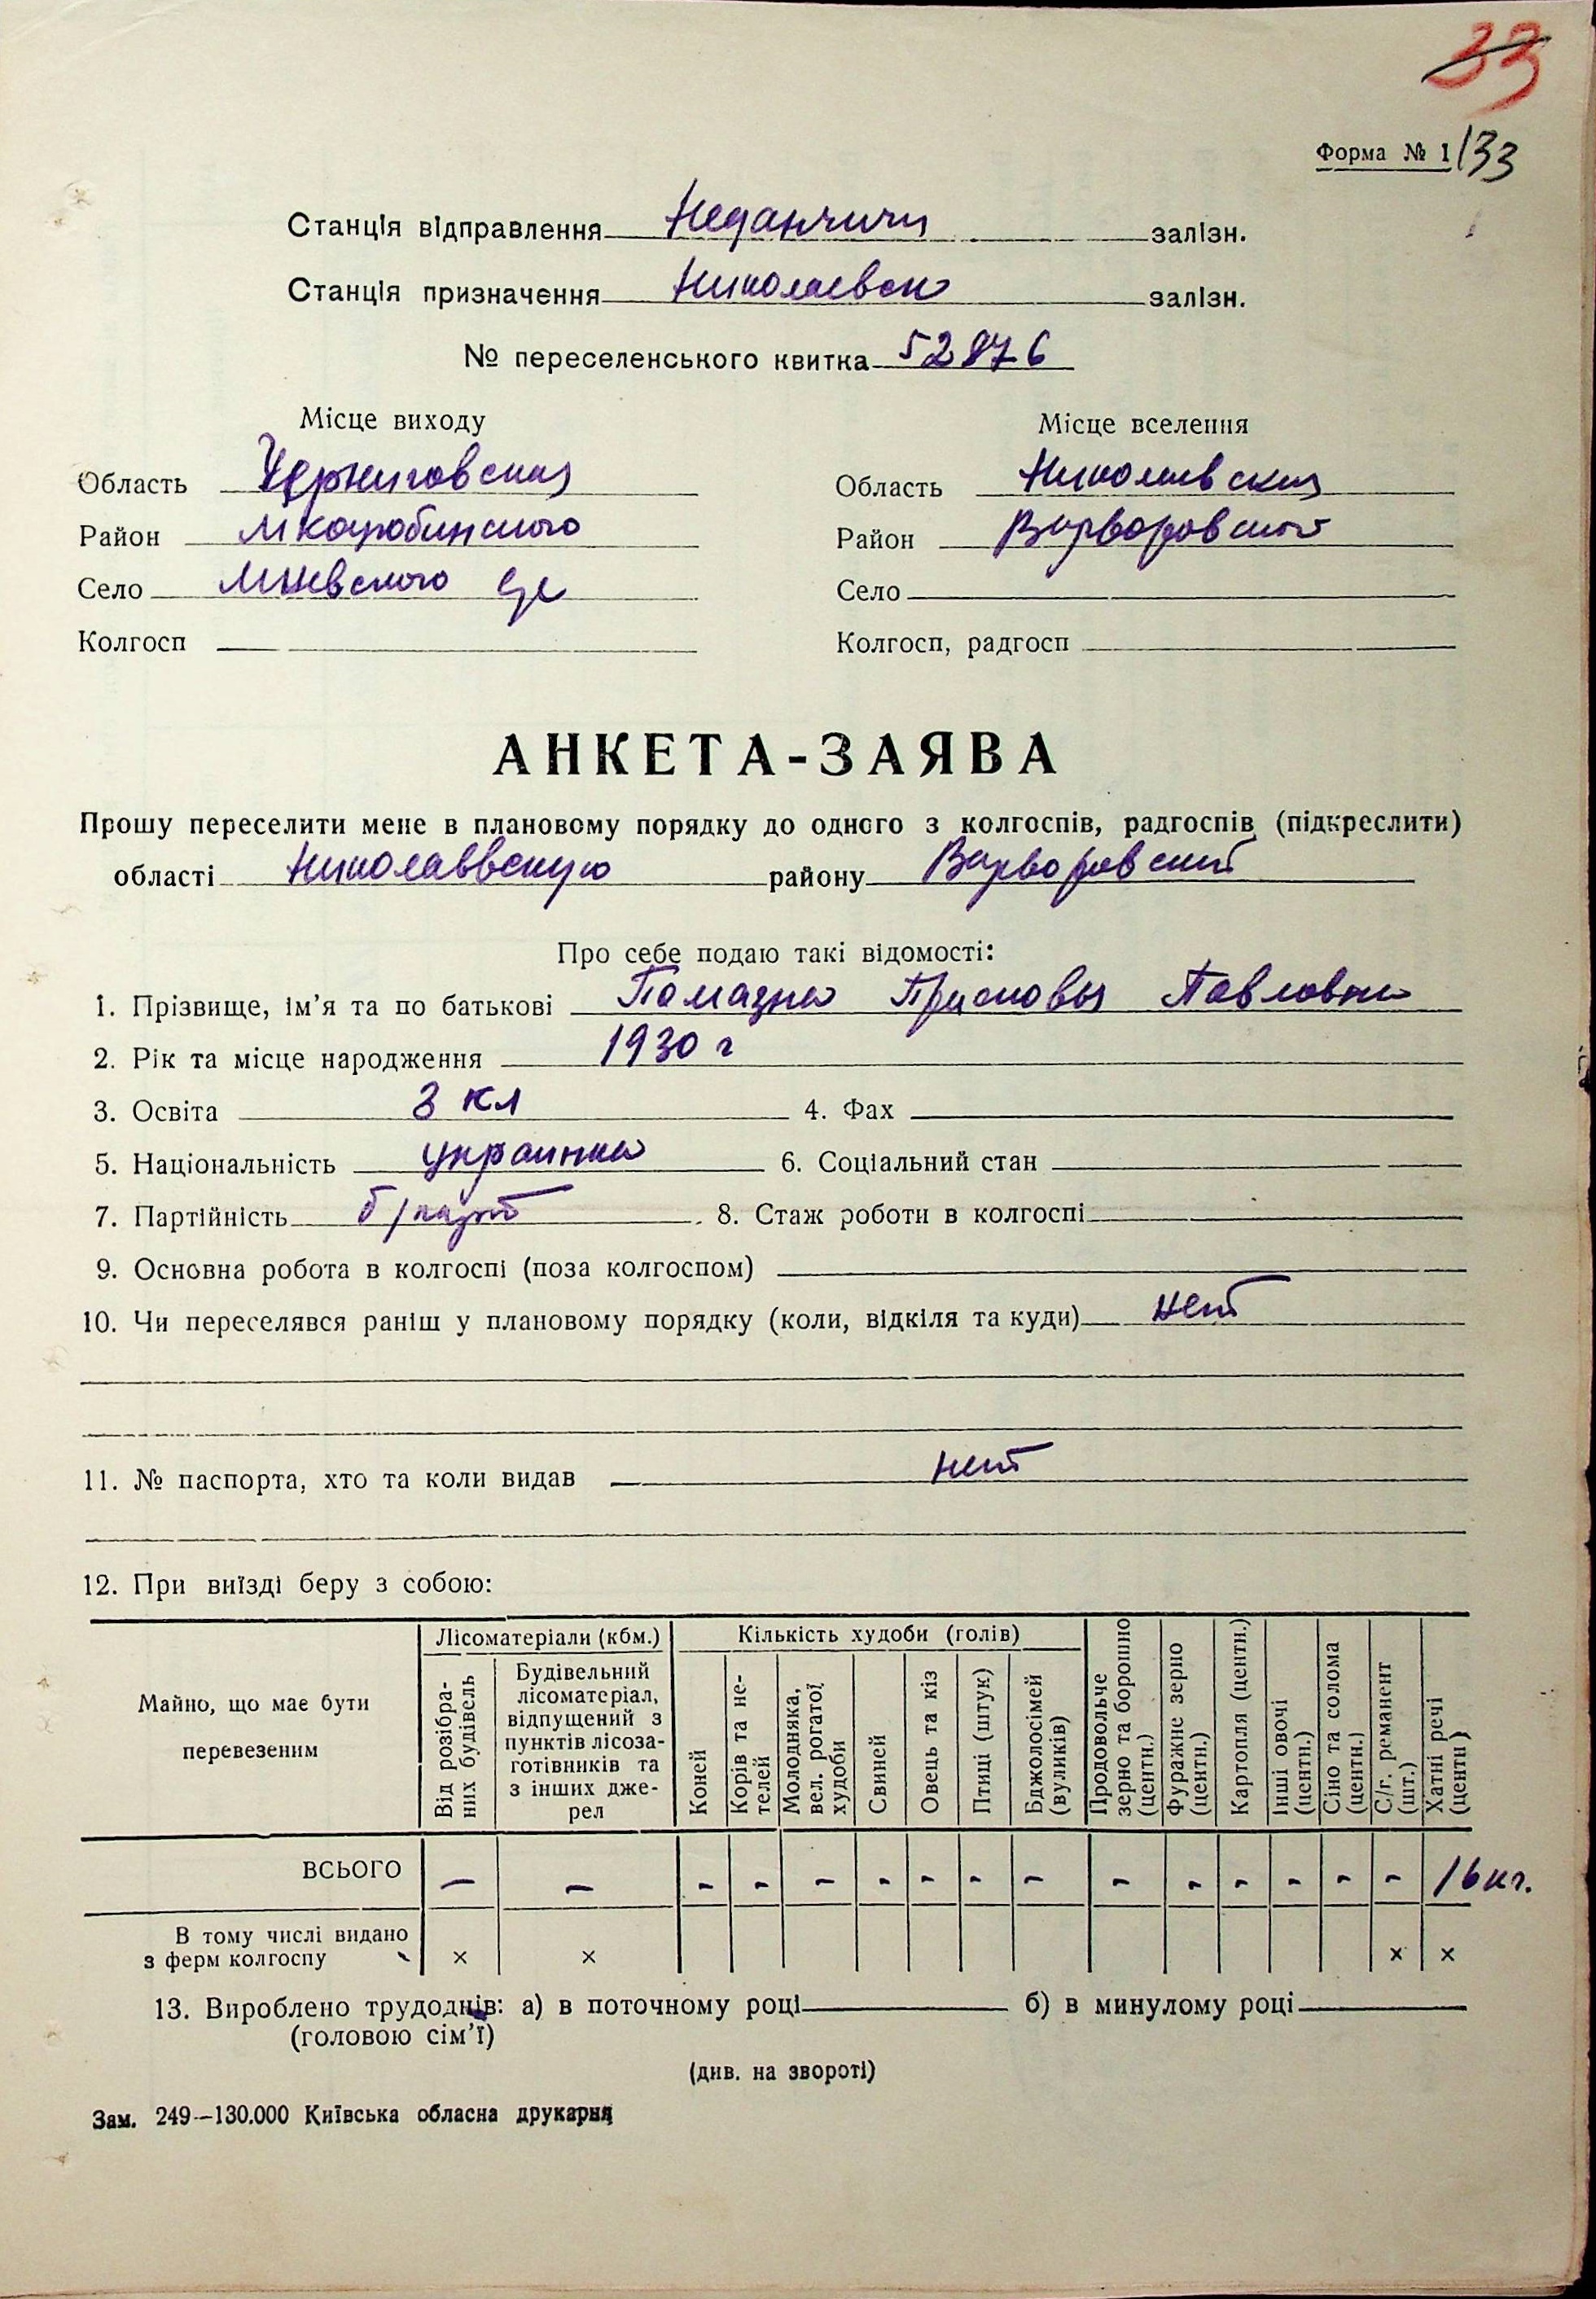 33
Форма № 1/33
Станція відправлення Неданчичи залізн.
Станція призначення Николаевск залізн.
№ переселенського квитка 52876
Місце виходу
Область Черниговская
Район Мкоцюбинского
Село
Колгосп
Місце вселення
Область Николаевская
Район Варворовский
Село
Колгосп, радгосп
АНКЕТА-ЗАЯВА
Прошу переселити мене в плановому порядку до одного з колгоспів, радгоспів (підкреслити)
області Николаввскую району Варворовский
Про себе подаю такі відомості:
1. Прізвище, ім'я та по батькові Памазна Павловна
2. Рік та місце народження 1930 г
3. Освіта 3 кл 4. Фах
5. Національність украинка 6. Соціальний стан
7. Партійність б/парт 8. Стаж роботи в колгоспі
9. Основна робота в колгоспі (поза колгоспом)
10. Чи переселявся раніш у плановому порядку (коли, відкіля та куди) нет
11. № паспорта, хто та коли видав нет
12. При виїзді беру з собою:
Майно, що має бути перевезеним
Лісоматеріали (кбм.)
Від розібраних будівель
Будівельний лісоматеріал, відпущений з пунктів лісозаготівників та з інших джерел
Кількість худоби (голів)
Коней
Корів та нетелей
Молодняка, вел. рогатої худоби
Свиней
Овець та кіз
Птиці (штук)
Бджолосімей (вуликів)
Продовольче зерно та борошно (центн.)
Фуражне зерно (центн.)
Картопля (центн.)
Інші овочі (центн.)
Сіно та солома (центн.)
С/г. реманент (шт.)
Хатні речі (центн)
ВСЬОГО — — - - - - - - - - - - - - - 16 кг.
В тому числі видано з ферм колгоспу × × × ×
13. Вироблено трудоднів: а) в поточному році б) в минулому році
(головою сім'ї)
(див. на звороті)
Зам. 249—130.000 Київська обласна друкарня